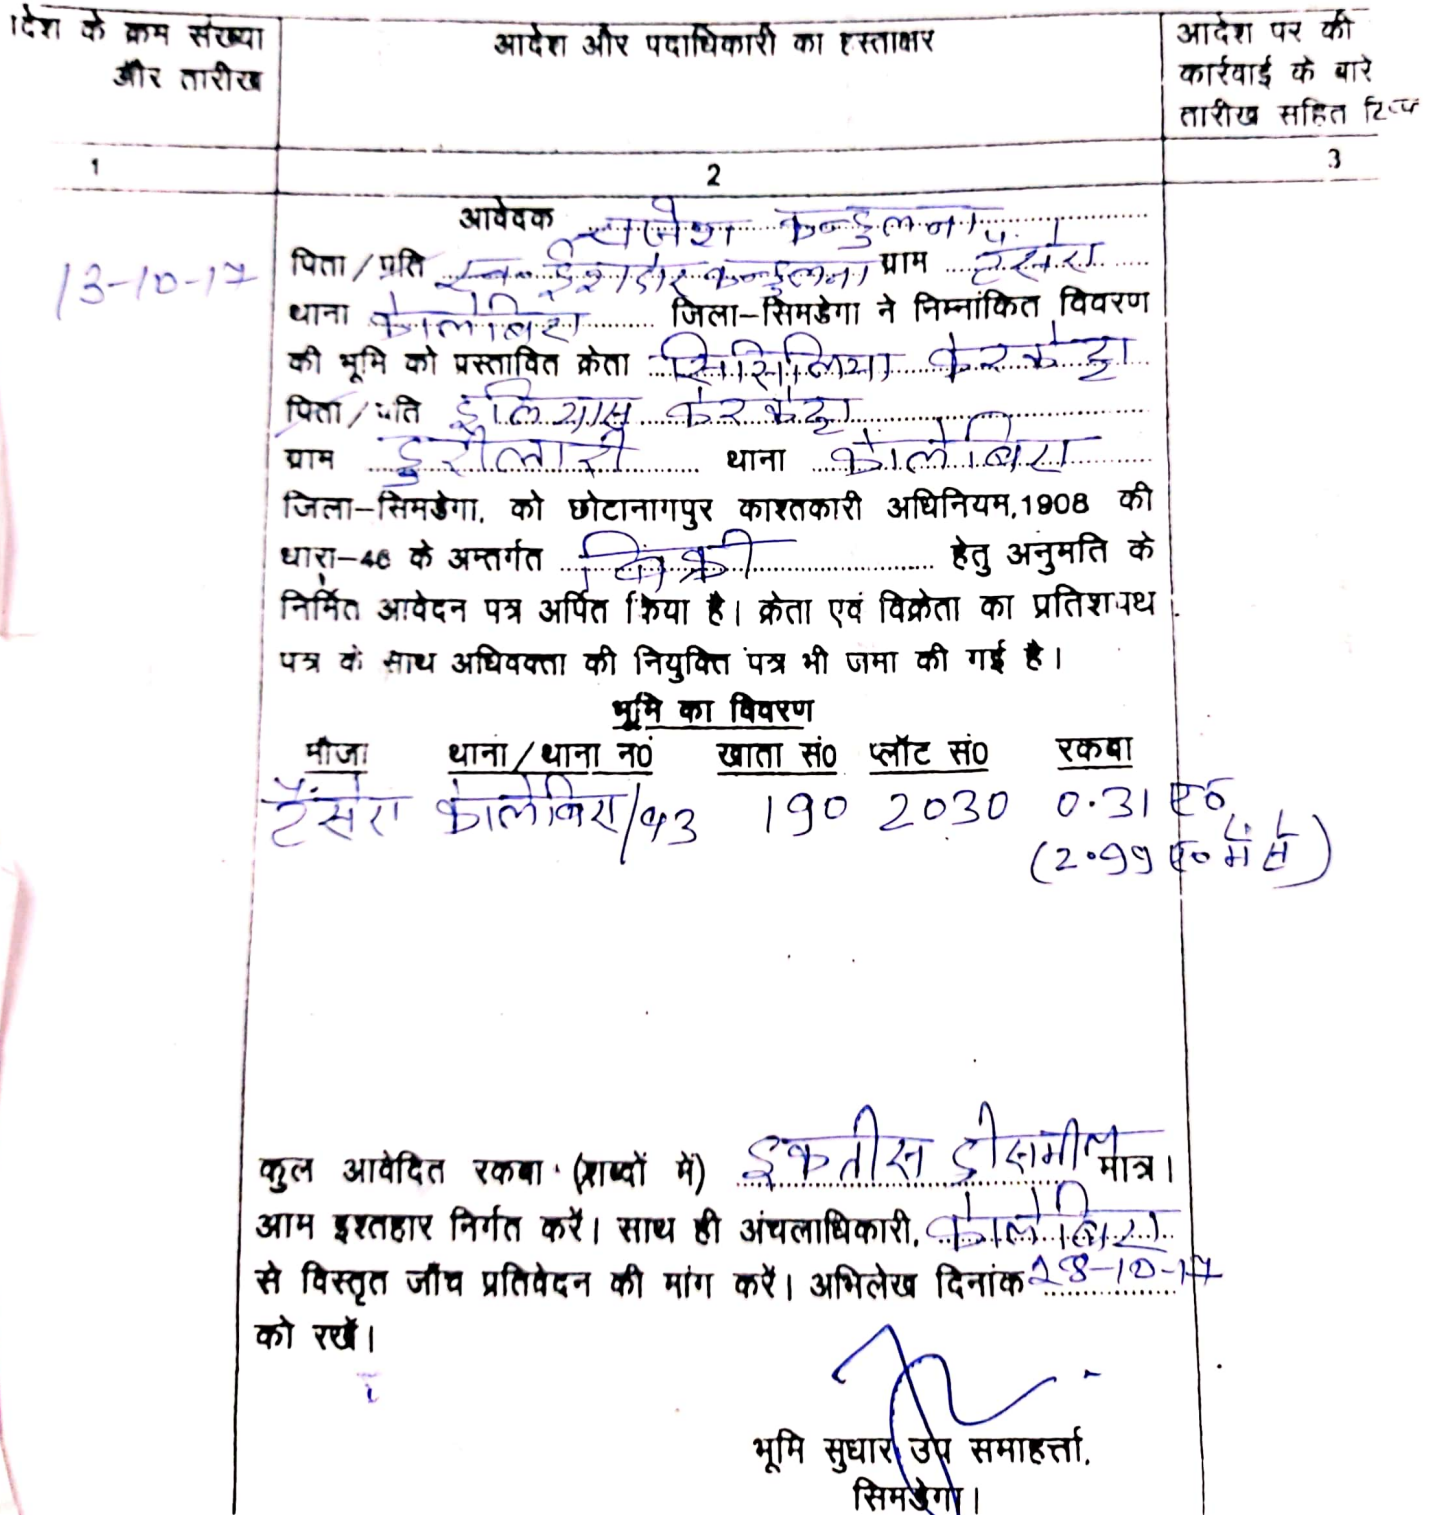 दिश के क्रम संख्या और तारीख
आदेश और पदाधिकारी का हस्ताक्षर
आदेश पर की कार्रवाई के बारे तारीख सहित
1
2
3
13-10-17
आवेदक कन्डुलना
पिता/प्रति स्व० कन्डुलना ग्राम टैंसेरा
थाना कोलेबिरा जिला-सिमडेगा ने निम्नांकित विवरण
की भूमि को प्रस्तावित क्रेता सिसिलिया केरकेट्टा
पिता/पति इलियास केरकेट्टा
ग्राम थाना कोलेबिरा
जिला-सिमडेगा, को छोटानागपुर काश्तकारी अधिनियम,1908 की
धारा-46 के अन्तर्गत बिक्री हेतु अनुमति के
निर्मित आवेदन पत्र अर्पित किया है। क्रेता एवं विक्रेता का प्रतिशपथ
पत्र के साथ अधिवक्ता की नियुक्ति पत्र भी जमा की गई है।
भूमि का विवरण
मौजा थाना/थाना नं0 खाता सं0 प्लॉट सं0 रकबा
टैंसेरा कोलेबिरा/93 190 2030 0.31 ए०
(2.99 ए० में से)
कुल आवेदित रकबा (शब्दों में) इकतीस डीसमील मात्र।
आम इश्तहार निर्गत करें। साथ ही अंचलाधिकारी, कोलेबिरा
से विस्तृत जाँच प्रतिवेदन की मांग करें। अभिलेख दिनांक 28-10-17
को रखें।
भूमि सुधार उप समाहर्त्ता,
सिमडेगा।